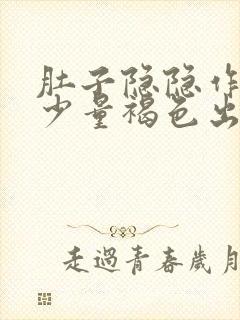 肚子隐隐作
少量褐色出
走過青春歲月